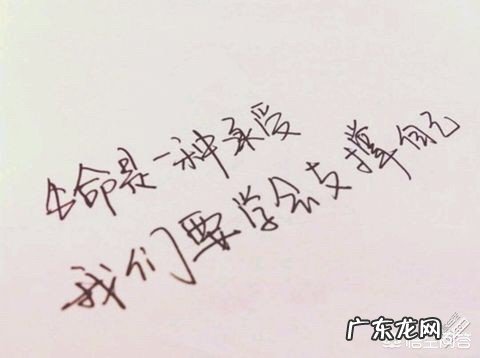 生命是一种承受
我们要学会支撑自己
广东龙网